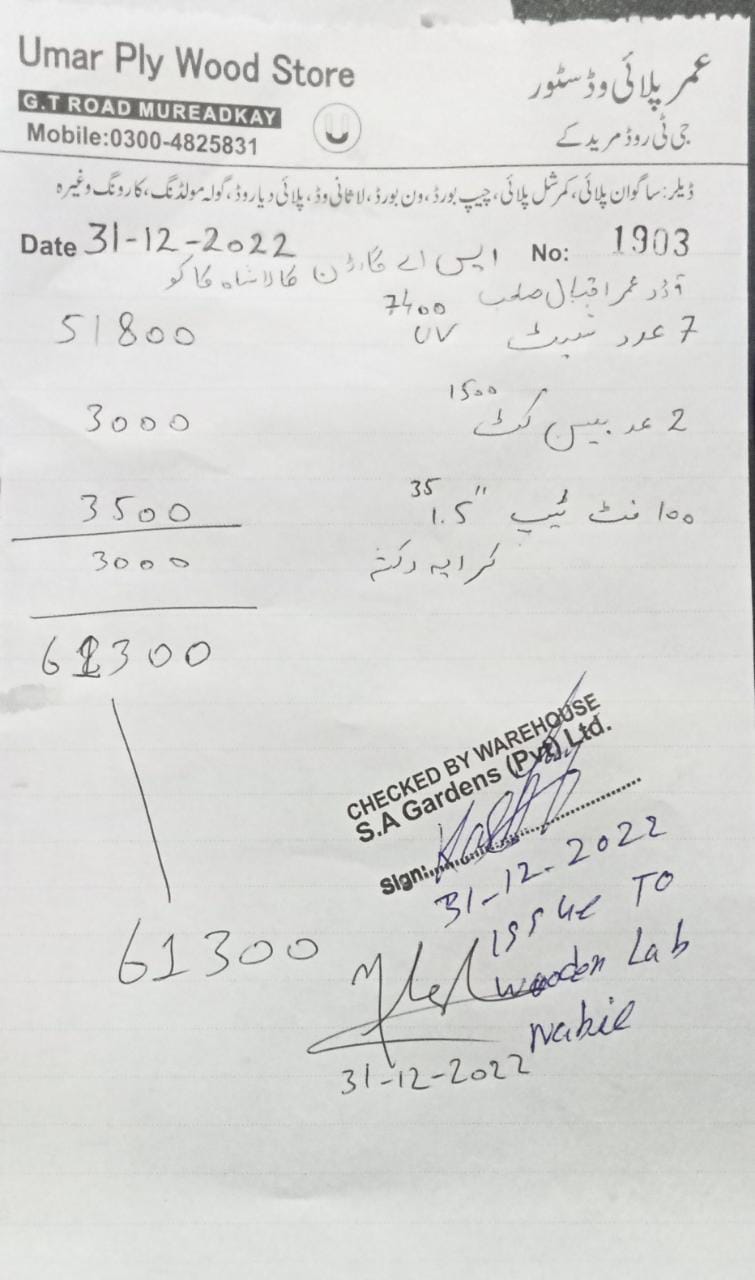 Umar Ply Wood Store
عمر پلائی وڈ سٹور
G.T ROAD MUREADKAY
جی ٹی روڈ مریدکے
Mobile:0300-4825831
ڈیلر: ساگوان پلائی، کمرشل پلائی، چیپ بورڈ، ون بورڈ، لاثانی وڈ، پلائی دیا روڈ، گولہ مولڈنگ، کارونگ وغیرہ
Date 31-12-2022 No: 1903
ایس اے گارڈن کالاشاہ کاکو
آڈر عمر اقبال صاحب
7400
7 عدد شیٹ UV 51800
1500
2 عدد بیس کٹ 3000
35
100 فٹ ٹیپ 1.5" 3500
کرایہ رکشہ 3000
61300
CHECKED BY WAREHOUSE
S.A Gardens (Pvt) Ltd.
Sign:
31-12-2022
61300
Issue To
Wooden Lab
Nabil
31-12-2022